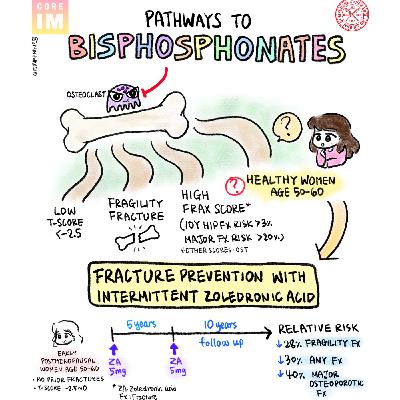 CORE
IM
PATHWAYS TO
BISPHOSPHONATES
OSTEOCLAST
?
?
HEALTHY WOMEN
AGE 50-60
LOW
T-SCORE
<-2.5
FRAGILITY
FRACTURE
HIGH
FRAX SCORE*
(10Y HIP FX RISK >3%
MAJOR FX RISK >20%)
*OTHER SCORES: OST
FRACTURE PREVENTION WITH
INTERMITTENT ZOLEDRONIC ACID
EARLY
POSTMENOPAUSAL
WOMEN AGE 50-60
• NO PRIOR FRACTURES
5 years
10 years
follow up
ZA
5mg
ZA
5mg
* ZA: Zoledronic acid
Fx: Fracture
RELATIVE RISK
↓28% FRAGILITY FX
↓30% ANY FX
↓40% MAJOR
OSTEOPOROTIC
FX